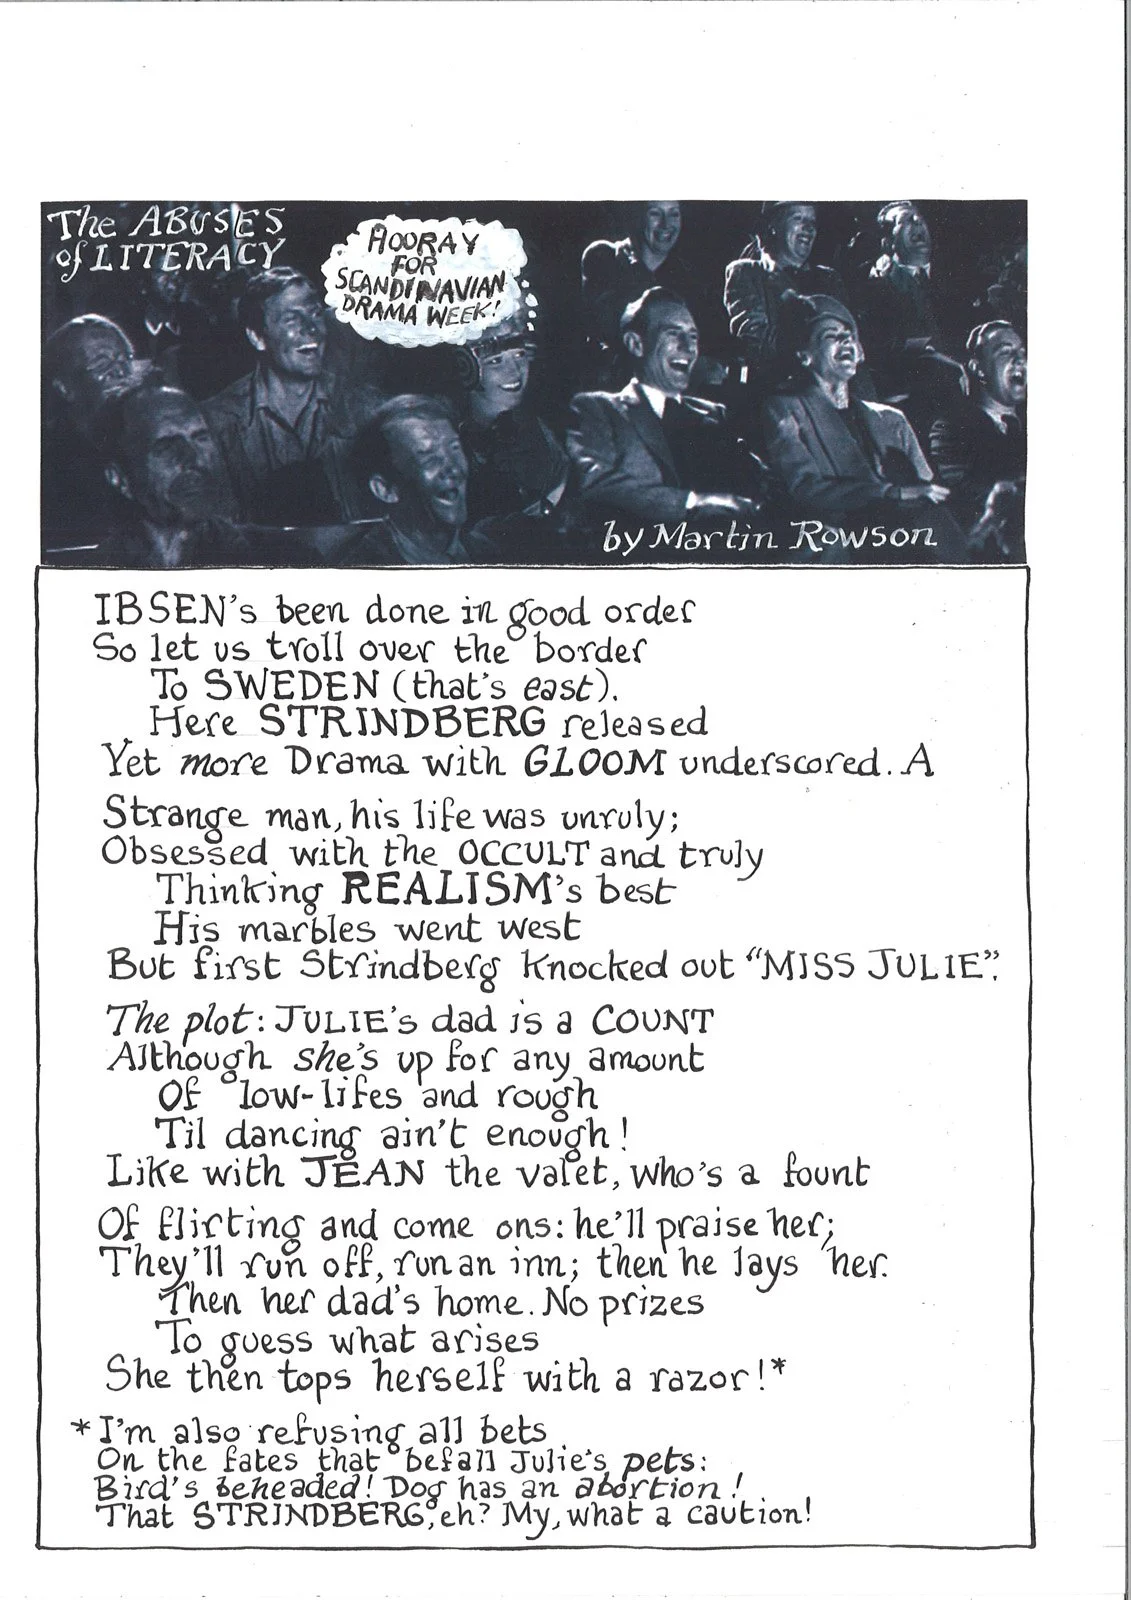 The ABUSES
of LITERACY
HOORAY
FOR
SCANDINAVIAN
DRAMA WEEK!
by Martin Rowson
IBSEN's been done in good order
So let us troll over the border
To SWEDEN (that's east).
Here STRINDBERG released
Yet more Drama with GLOOM underscored. A
Strange man, his life was unruly;
Obsessed with the OCCULT and truly
Thinking REALISM's best
His marbles went west
But first Strindberg knocked out "MISS JULIE".
The plot: JULIE's dad is a COUNT
Although she's up for any amount
Of low-lifes and rough
Til dancing ain't enough!
Like with JEAN the valet, who's a fount
Of flirting and come ons: he'll praise her;
They'll run off, run an inn; then he lays her.
Then her dad's home. No prizes
To guess what arises
She then tops herself with a razor!*
*I'm also refusing all bets
On the fates that befall Julie's pets:
Bird's beheaded! Dog has an abortion!
That STRINDBERG, eh? My, what a caution!